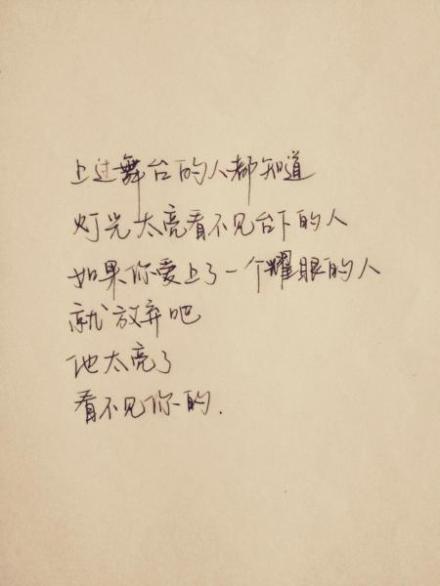 上过舞台的人都知道
灯光太亮看不见台下的人
如果你爱上了一个耀眼的人
就放弃吧
他太亮了
看不见你的.